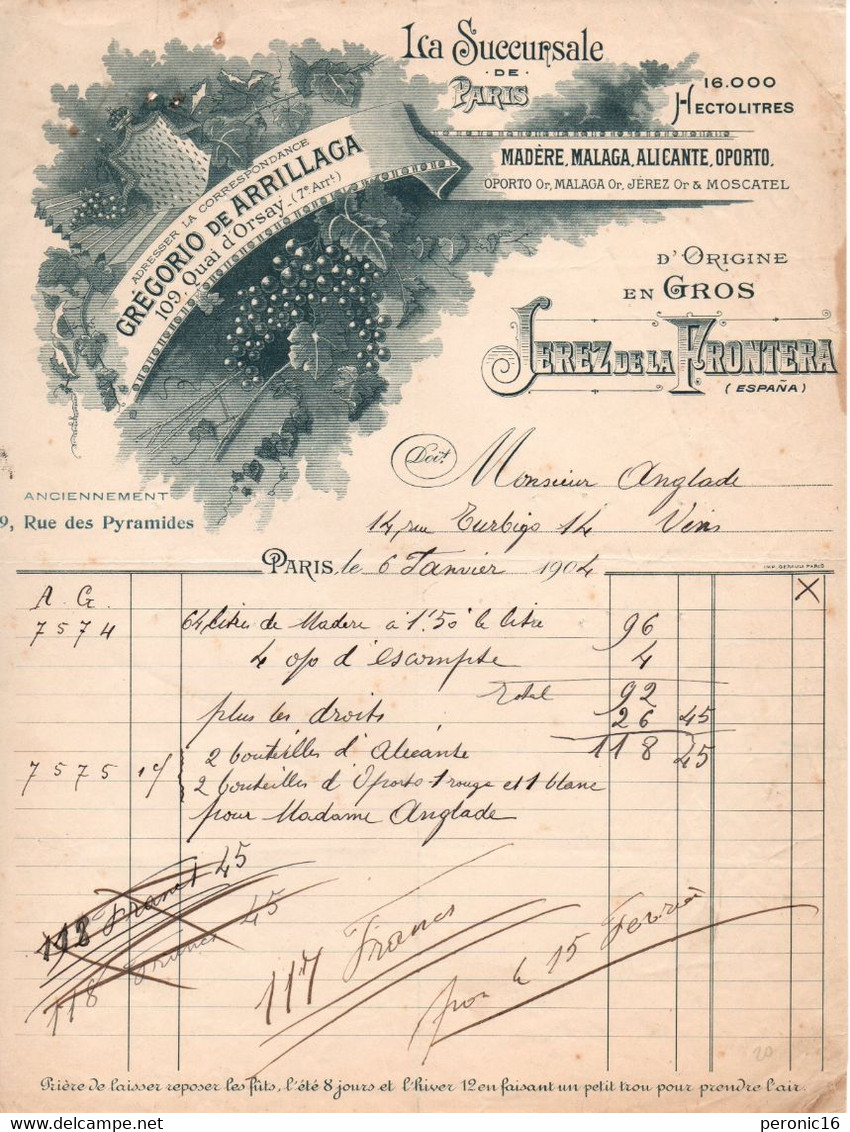 La Succursale
DE
PARIS
16.000
HECTOLITRES
MADÈRE, MALAGA, ALICANTE, OPORTO,
OPORTO Or, MALAGA Or, JÉREZ Or & MOSCATEL
ADRESSER LA CORRESPONDANCE
GRÉGORIO DE ARRILLAGA
109, Quai d'Orsay (7e Arrt)
D'ORIGINE
EN GROS
JEREZ DE LA FRONTERA
(ESPAÑA)
Doit
Monsieur Anglade
ANCIENNEMENT
9, Rue des Pyramides
14, rue Turbigo 14 Vins
PARIS, le 6 Janvier 1904
IMP. GERAULT PARIS
A. G.
7574 64 litres de Madere à 1f50 le litre 96
4 o/o d'escompte 4
Total 92
plus les droits 26 45
118 45
7575 2 bouteilles d'Alicante
2 bouteilles d'Oporto 1 rouge et 1 blanc
pour Madame Anglade
118 Francs 45
118 Francs 45
117 Francs
pour le 15 Fevrier
20
Prière de laisser reposer les fûts, l'été 8 jours et l'hiver 12 en faisant un petit trou pour prendre l'air.
peronic16